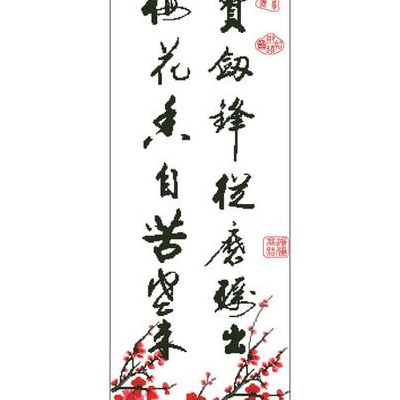 寶劔鋒從磨礪出
梅花香自苦寒来